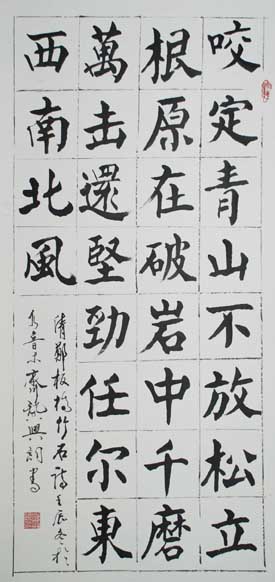 咬定青山不放松立
根原在破岩中千磨
萬击還堅勁任尔東
西南北風
清鄭板桥竹石詩壬辰冬於
齋龍興書